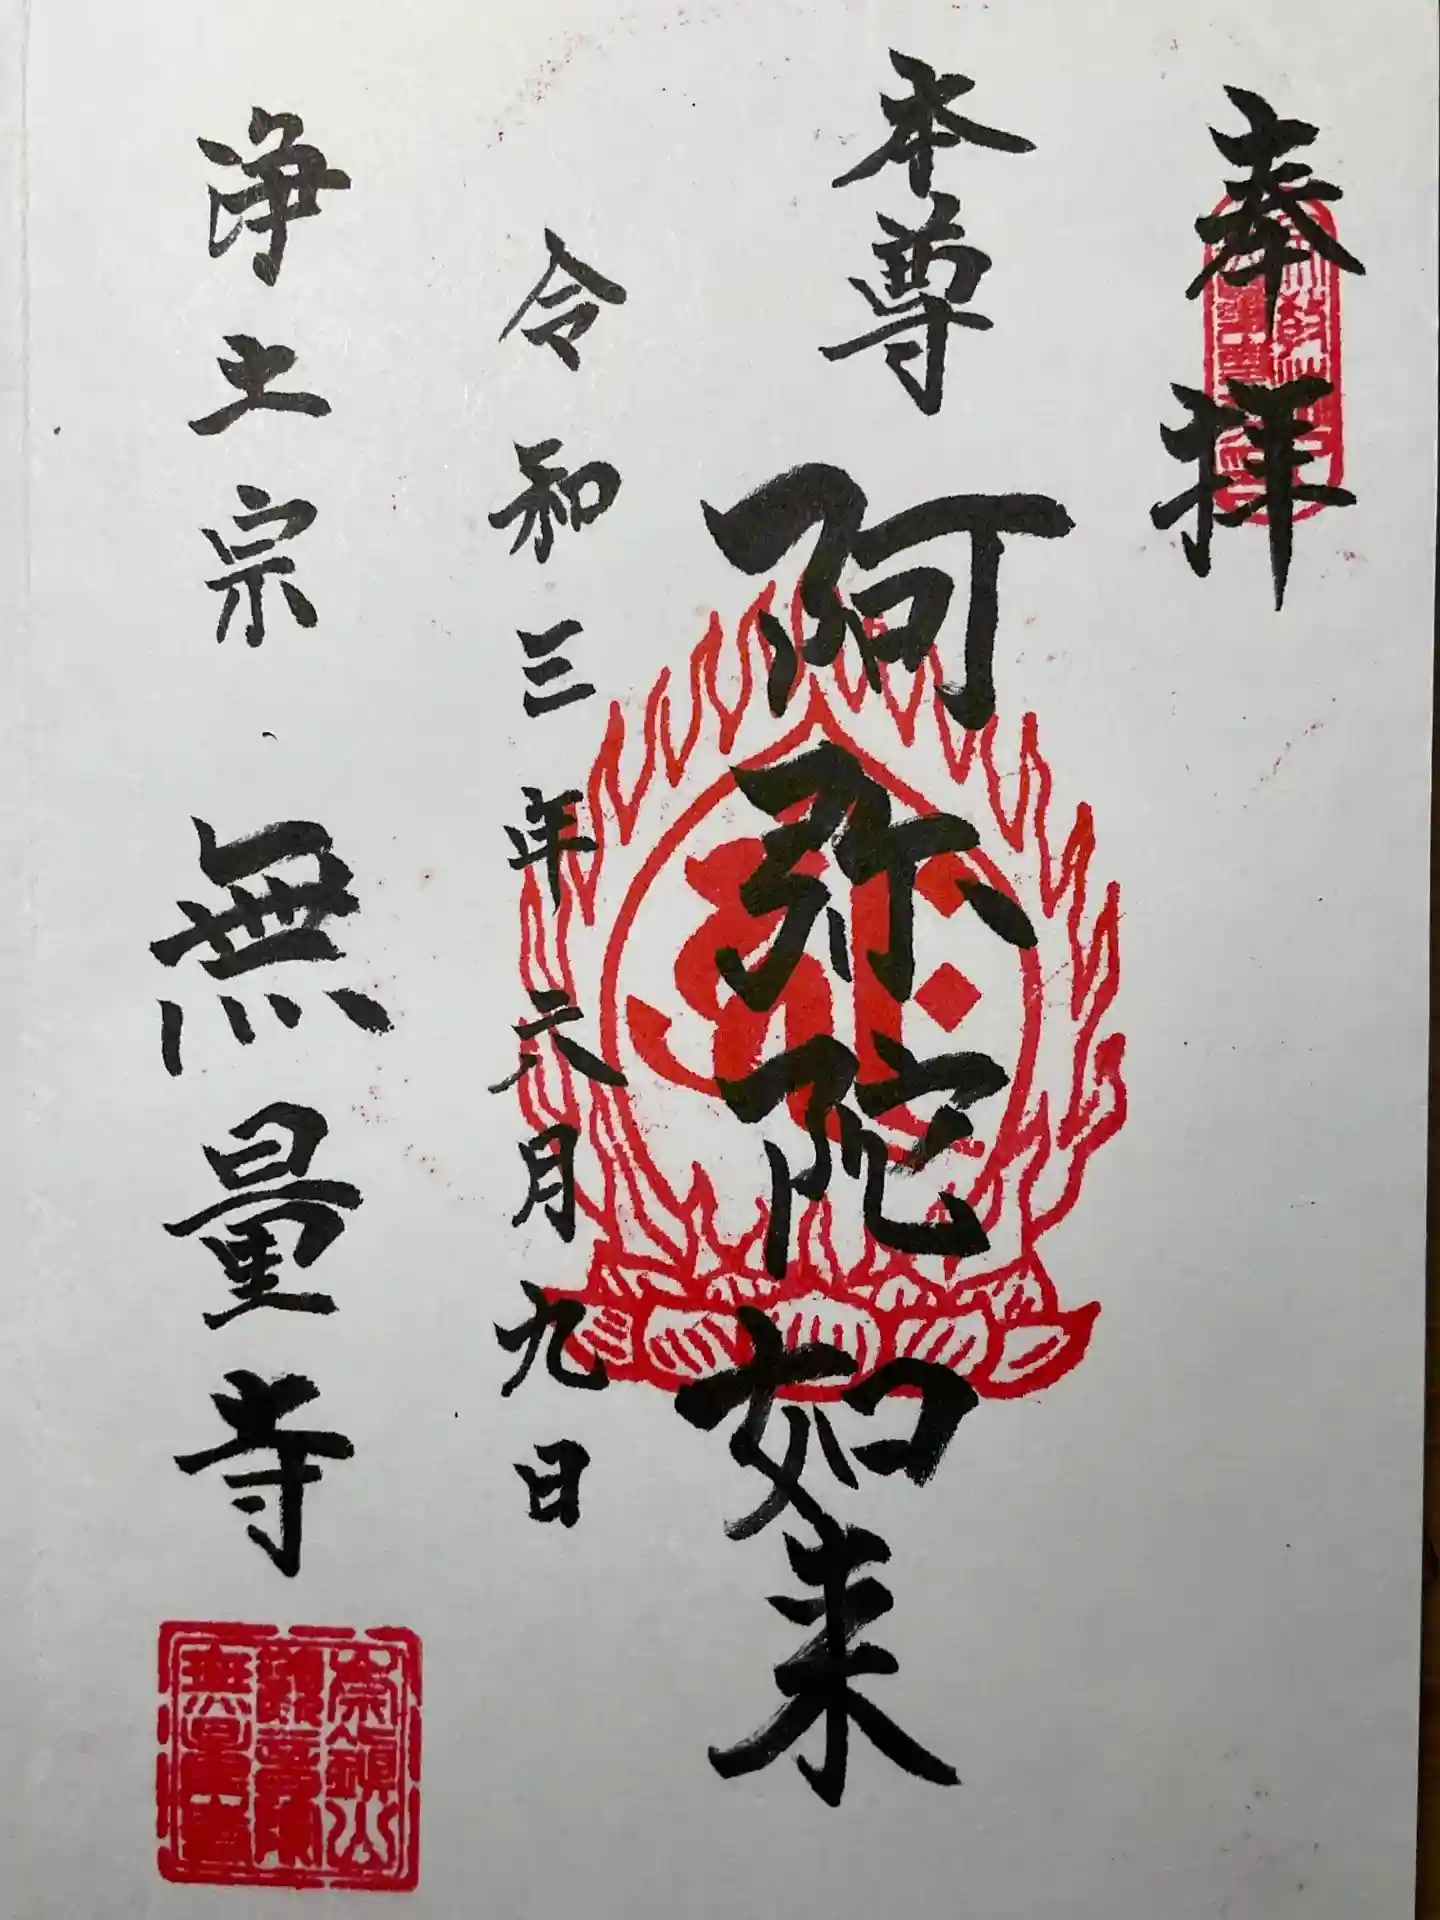 奉拝
本尊 阿弥陀如来
令和三年六月九日
浄土宗 無量寺